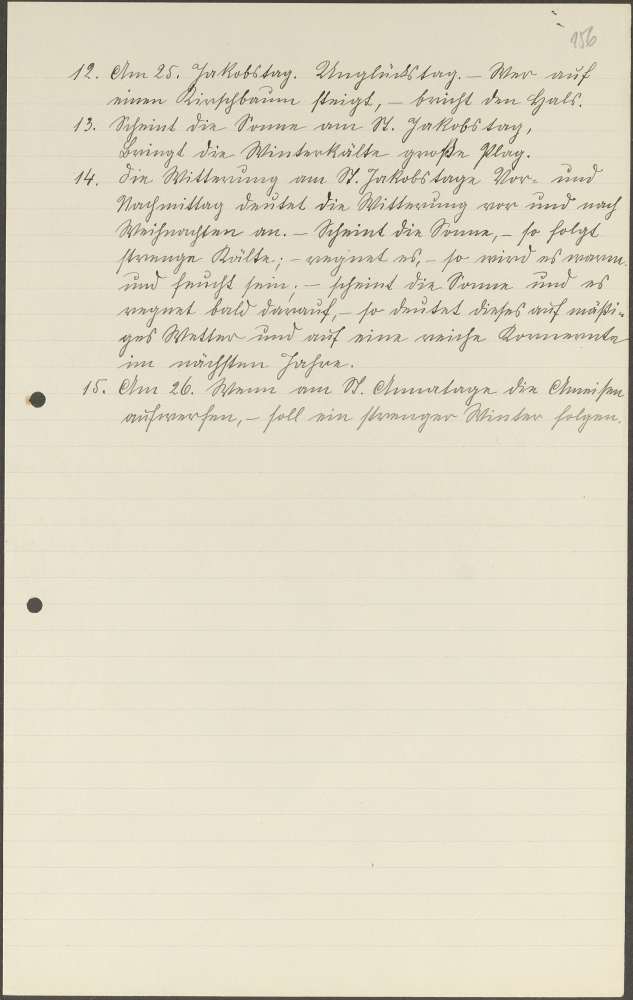 156
12. Am 25. Jakobstag. Unglückstag. – Wer auf
einen Kirschbaum steigt, – bricht den Hals.
13. Scheint die Sonne am St. Jakobstag,
Bringt die Winterkälte große Plag.
14. Die Witterung am St. Jakobstage Vor- und
Nachmittag deutet die Witterung vor und nach
Weihnachten an. – Scheint die Sonne, – so folgt
strenge Kälte; – regnet es, – so wird es warm
und feucht sein; – scheint die Sonne und es
regnet bald darauf, – so deutet dieses auf mäßi-
ges Wetter und auf eine reiche Kornernte
im nächsten Jahre.
15. Am 26. Wenn am St. Annatage die Ameisen
aufwerfen, – soll ein strenger Winter folgen.